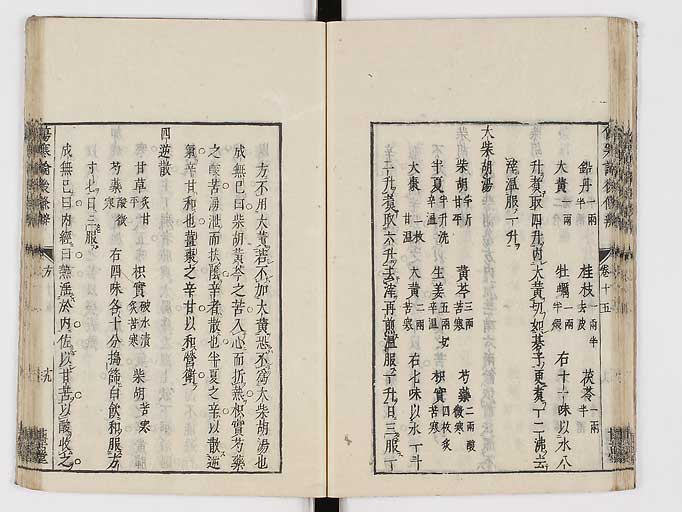 鉛丹一兩半 桂枝一兩半去皮 茯苓一兩半
大黄二兩 牡蠣一兩半煨 右十一味以水八
升煮取四升内大黄切如碁子更煮一二沸去
滓温服一升
大柴胡湯
柴胡半斤甘平 黄芩三兩苦寒 芍藥二兩酸微寒
半夏半升洗辛温 生姜五兩切辛温 枳實四枚炙苦寒
大棗二枚甘温 大黄二兩苦寒 右七味以水一斗
二升煮取六升去滓再煎温服一升日三服一
卷十五
方不用大黄若不加大黄恐不爲大柴胡湯也
成無已曰柴胡黄芩之苦入心而折熱枳實芍藥
之酸苦湧泄而扶陰辛者散也半夏之辛以散逆
氣辛甘和也薑棗之辛甘以和營衛
四逆散
甘草炙甘平 枳實破水漬炙苦寒 柴胡苦寒
芍藥酸微寒 右四味各十分搗篩白飲和服方
寸七日三服
成無已曰内經曰熱淫於内佐以甘苦以酸收之
傷寒論後條辨
方